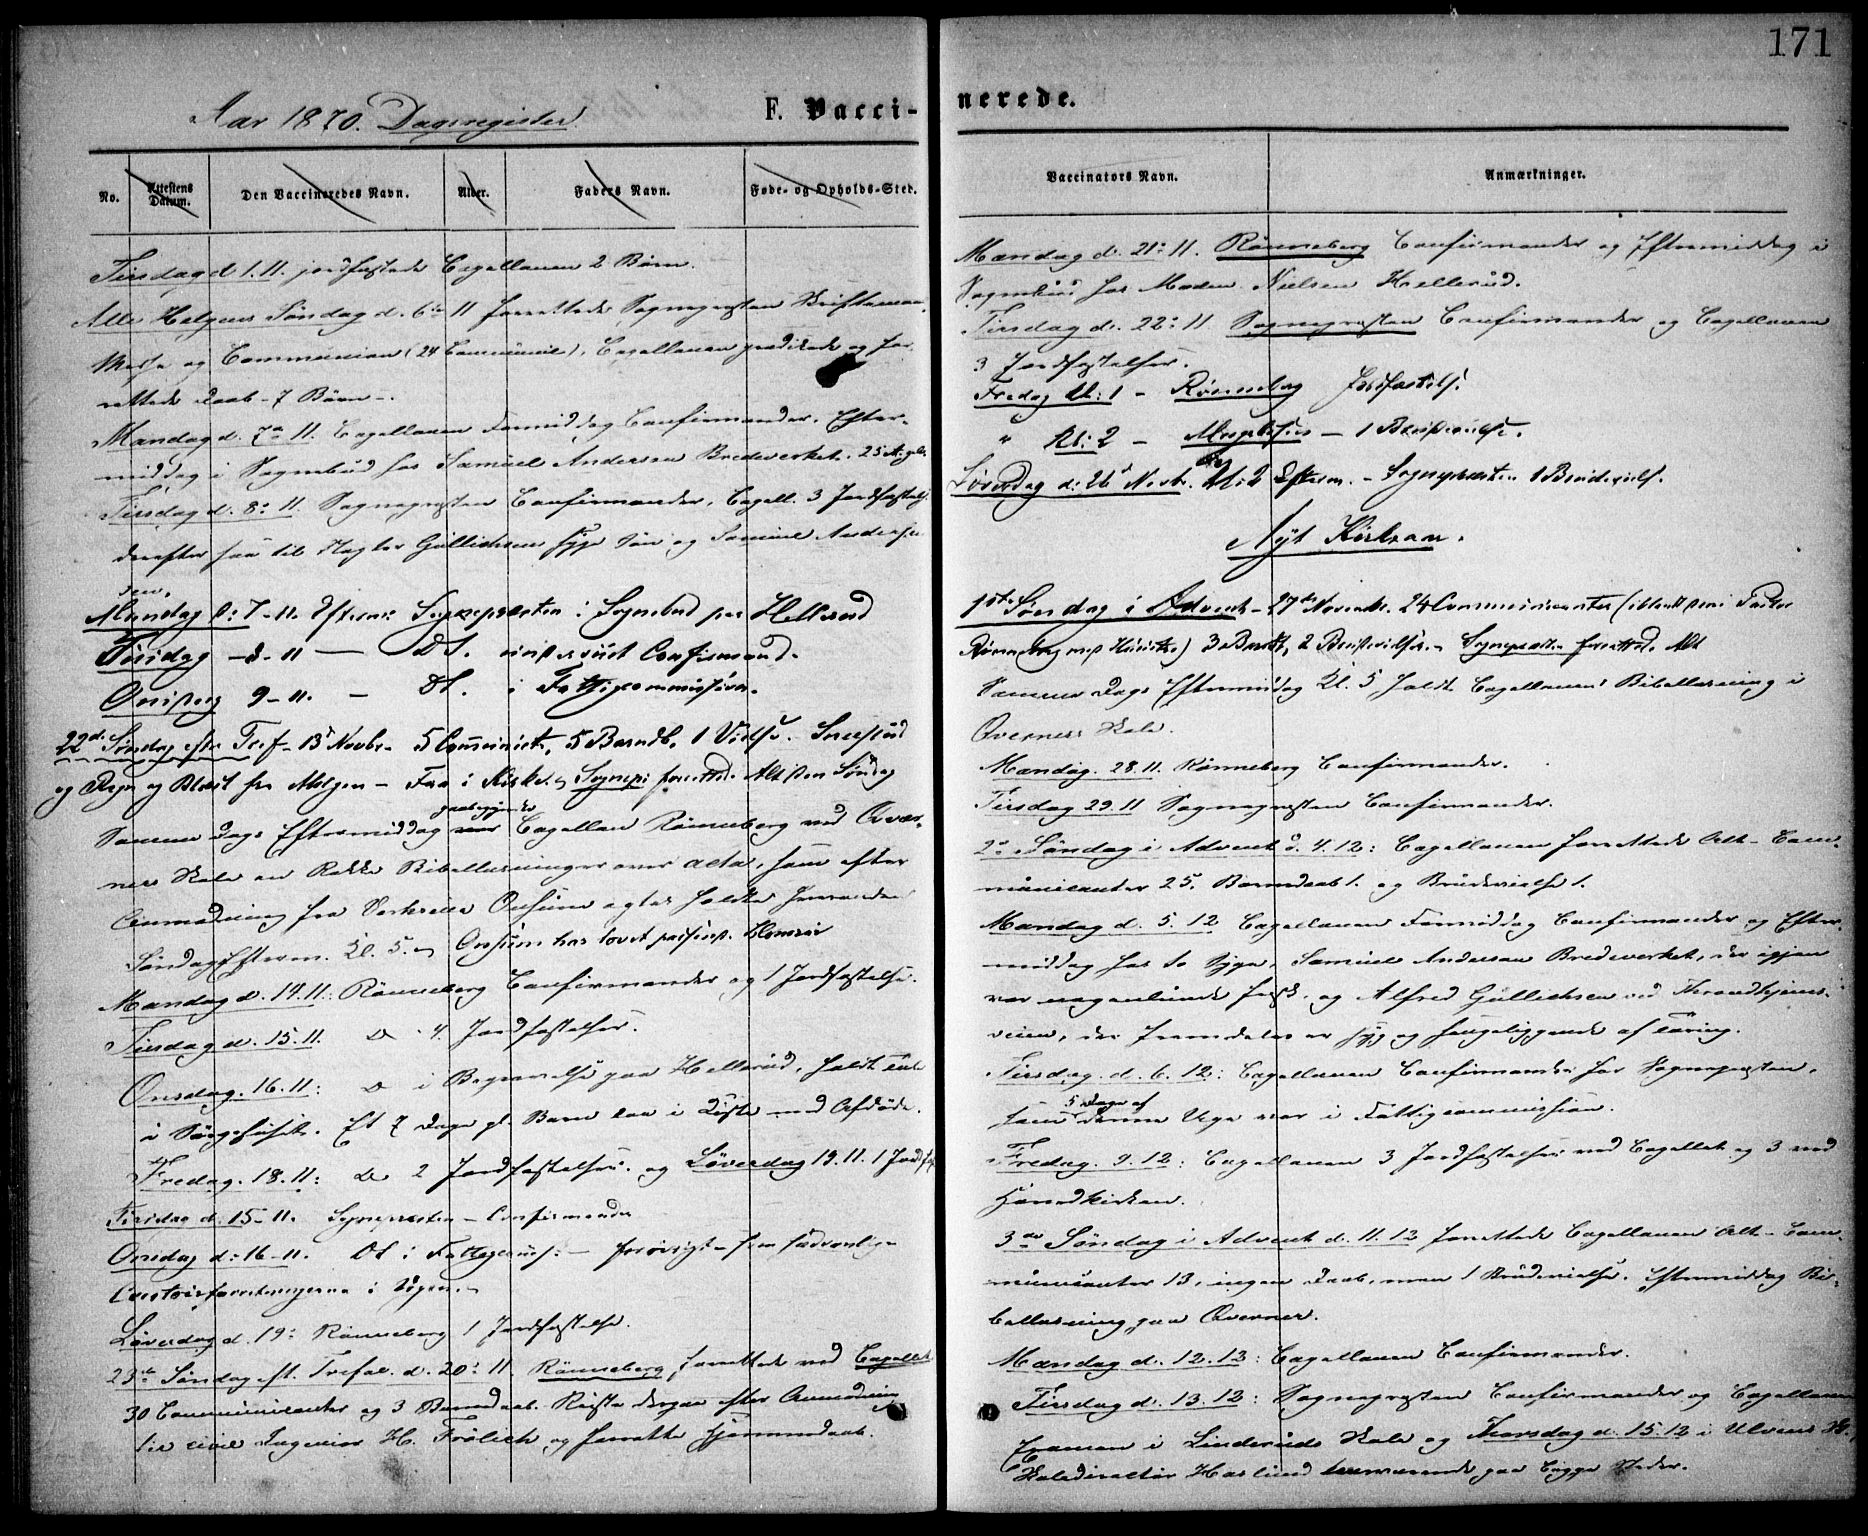 171
Aar 1870. Dagsregister.
F. Vaccinerede.
No. Attestens Datum. Den Vaccineredes Navn. Alder. Faders Navn. Føde- og Opholds-Sted. Vaccinators Navn. Anmærkninger.
Tirsdag d. 1. 11. jordfæstede Capellanen 2 Børn.
Alle Helgens Søndag d. 6te 11 forrettede Sognepræsten Skriftemaal,
Messe og Communion (24 Communic.), Capellanen prædikede og for-
rettede Daab - 7 Børn -.
Mandag d. 7de 11. Capellanen Formiddag Confirmander. Efter-
middag i Sognebud hos Samuel Andersen Bredeverket. 25
Tirsdag d. 8de 11. Sognepræsten Confirmander, Capell. 3 Jordfæstelser
derefter til Gullichsens syge Søn og Samuel Ander-
sen.
Mandag d: 7-11. Efterm: Sognepræsten i Sognebud paa Hellerud
Tirsdag - 8-11 — Do. Confirmand.
Onsdag 9-11. - Do. i Fattigcommission.
22de Søndag efter Tref - 13de Novbr. 5 Communic., 5 Barndb. 1 Vielse.
og Regn og Blæst fra Morgen - Faa i Kirke. Sognepr forrettede Alt denne Søndag
Samme Dags Eftermiddag Capellan Rönneberg ved Over-
ners Skole en Række Bibellæsninger over Acta, som efter
Anmodning fra Onsum agtes holdte hveranden
Søndag Efterm. Kl. 5. Onsum har lovet
Mandag d. 14. 11.: Rönneberg Confirmander og 1 Jordfæstelse.
Tirsdag d. 15. 11. Do 4 Jordfæstelser.
Onsdag. 16. 11: Do i Begravelse paa Hellerud, holdt Tale
i Sørgehuset. Et 7 Dage gl. Barn laa i Kiste med Afdøde.
Fredag. 18. 11: Do 2 Jordfæstelser. og Løverdag 19. 11. 1 Jordf.
Tirsdag d. 15-11. Sognepræsten - Confirmander
Onsdag d: 16-11. Do i Fattigcomm: - forøvrigt som sædvanlig
Contoirforretningerne i Ugen.
Løverdag d. 19: Rönneberg 1 Jordfæstelse.
23de Søndag eft. Trefol. d. 20: 11. Rönneberg forrettede ved Capellet
30 Communicanter og 3 Barnedaab. Reiste derpaa efter Anmodning
til civil Ingeniør H. Frölich og forrettede Hjemmedaab.
Mandag d. 21: 11. Rönneberg Confirmander og Eftermiddag i
Sognebud hos Madm Nielsen Hellerud.
Tirsdag d. 22: 11. Sognepræsten Confirmander og Capellanen
3 Jordfæstelser.
Fredag Kl: 1 - Rönneberg Jordfæstelse.
" Kl: 2 - — 1 Brudevielse.
Løverdag d: 26 Novbr. Kl: 2 Efterm. - Sognepræsten 1 Brudevielse.
Nyt Kirkeaar.
1ste Søndag i Advent - 27de Novembr. 24 Communicanter (iblandt dem
Rönneberg med Hustru) 3 Barndb, 2 Brudevielser. - Sognepræsten forrettede Alt
Samme Dags Eftermiddag Kl. 5 holdt Capellanen Bibellæsning i
Overners Skole.
Mandag. 28. 11. Rönneberg Confirmander.
Tirsdag 29. 11 Sognepræsten Confirmander.
2de Søndag i Advent d. 4. 12: Capellanen forrettede Alt - Com-
municanter 25. Barnedaab 1. og Brudevielse 1.
Mandag d. 5. 12 Capellanen Formiddag Confirmander og Efter-
middag hos to Syge, Samuel Andersen Bredeverket, der igjen
var nogenlunde frisk, og Alfred Gullichsen ved Throndhjems-
veien, der fremdeles er syg og sengeliggende af Tæring.
Tirsdag. d. 6. 12: Capellanen Confirmander for Sognepræsten,
som 5 Dage af denne Uge var i Fattigcommission.
Fredag. 9. 12: Capellanen 3 Jordfæstelser ved Capellet og 3 ved
Hovedkirken.
3die Søndag i Advent d. 11. 12 forrettede Capellanen Alt - Com-
municanter 13, ingen Daab, men 1 Brudevielse. Eftermiddag Bi-
bellæsning paa Overner.
Mandag d. 12. 12: Capellanen Confirmander.
Tirsdag d. 13. 12: Sognepræsten Confirmander og Capellanen
Examen i Linderuds Skole og Thorsdag d. 15. 12 i Ulvens
Skoledirektør Haslund tilstedeværende paa begge Steder.